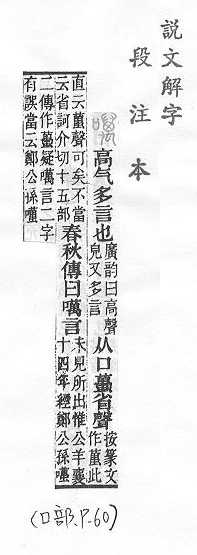 說文解字
段注本
高气多言也廣韵曰高聲皃又多言从口蠆省聲按篆文作萬此
直云萬聲可矣不當云省訶介切十五部春秋傳曰噧言未見所出惟公羊襄十四年經鄭公孫噧
二傳作蠆疑噧言二字有誤當云鄭公孫噧
(口部.P.60)